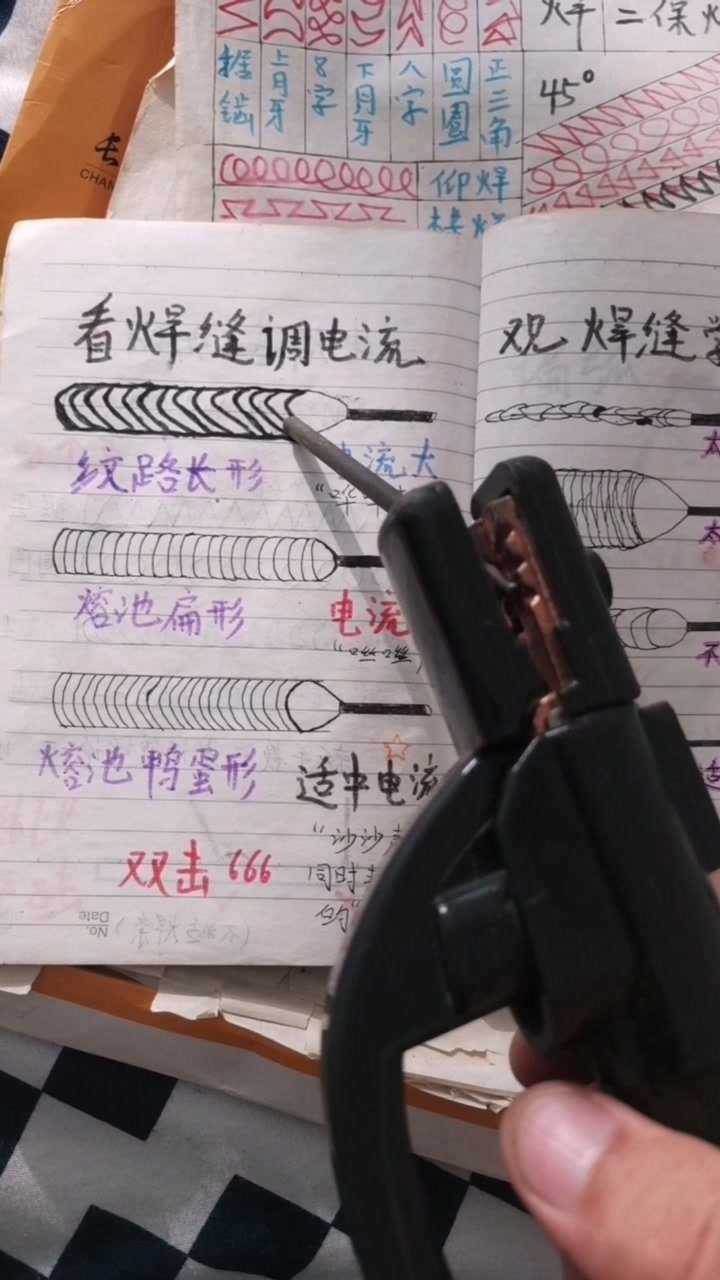 焊 二保焊
锯齿 上月牙 8字 下月牙 八字 圆圈 正三角
45°
仰焊
CHAN
看焊缝调电流
纹路长形 电流大
熔池扁形 电流
熔池鸭蛋形 适中电流
"沙沙声
同时
双击666
No.
Date
观焊缝学
太
太
不
适